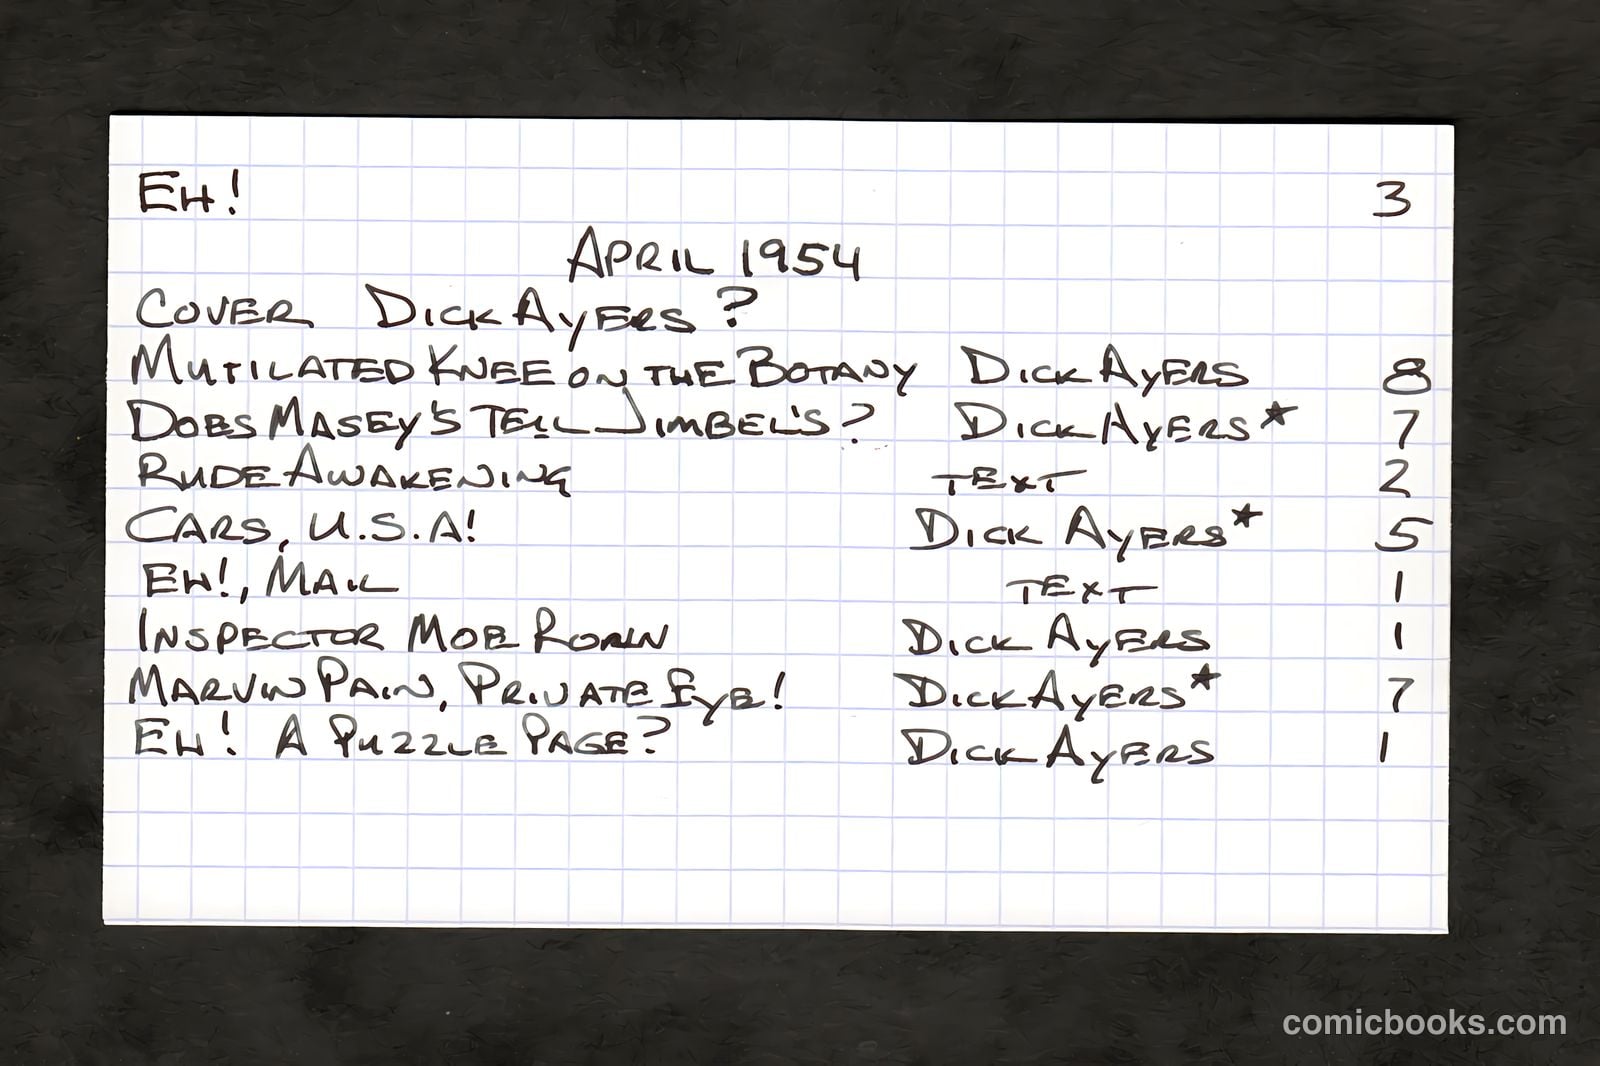 EH! 3
APRIL 1954
COVER DICK AYERS ?
MUTILATED KNEE ON THE BOTANY DICK AYERS 8
DOES MASEY'S TELL JIMBEL'S? DICK AYERS* 7
RUDE AWAKENING TEXT 2
CARS, U.S.A! DICK AYERS* 5
EH!, MAIL TEXT 1
INSPECTOR MOE DICK AYERS 1
MARVIN PAIN, PRIVATE EYE! DICK AYERS* 7
EH! A PUZZLE PAGE? DICK AYERS 1
comicbooks.com